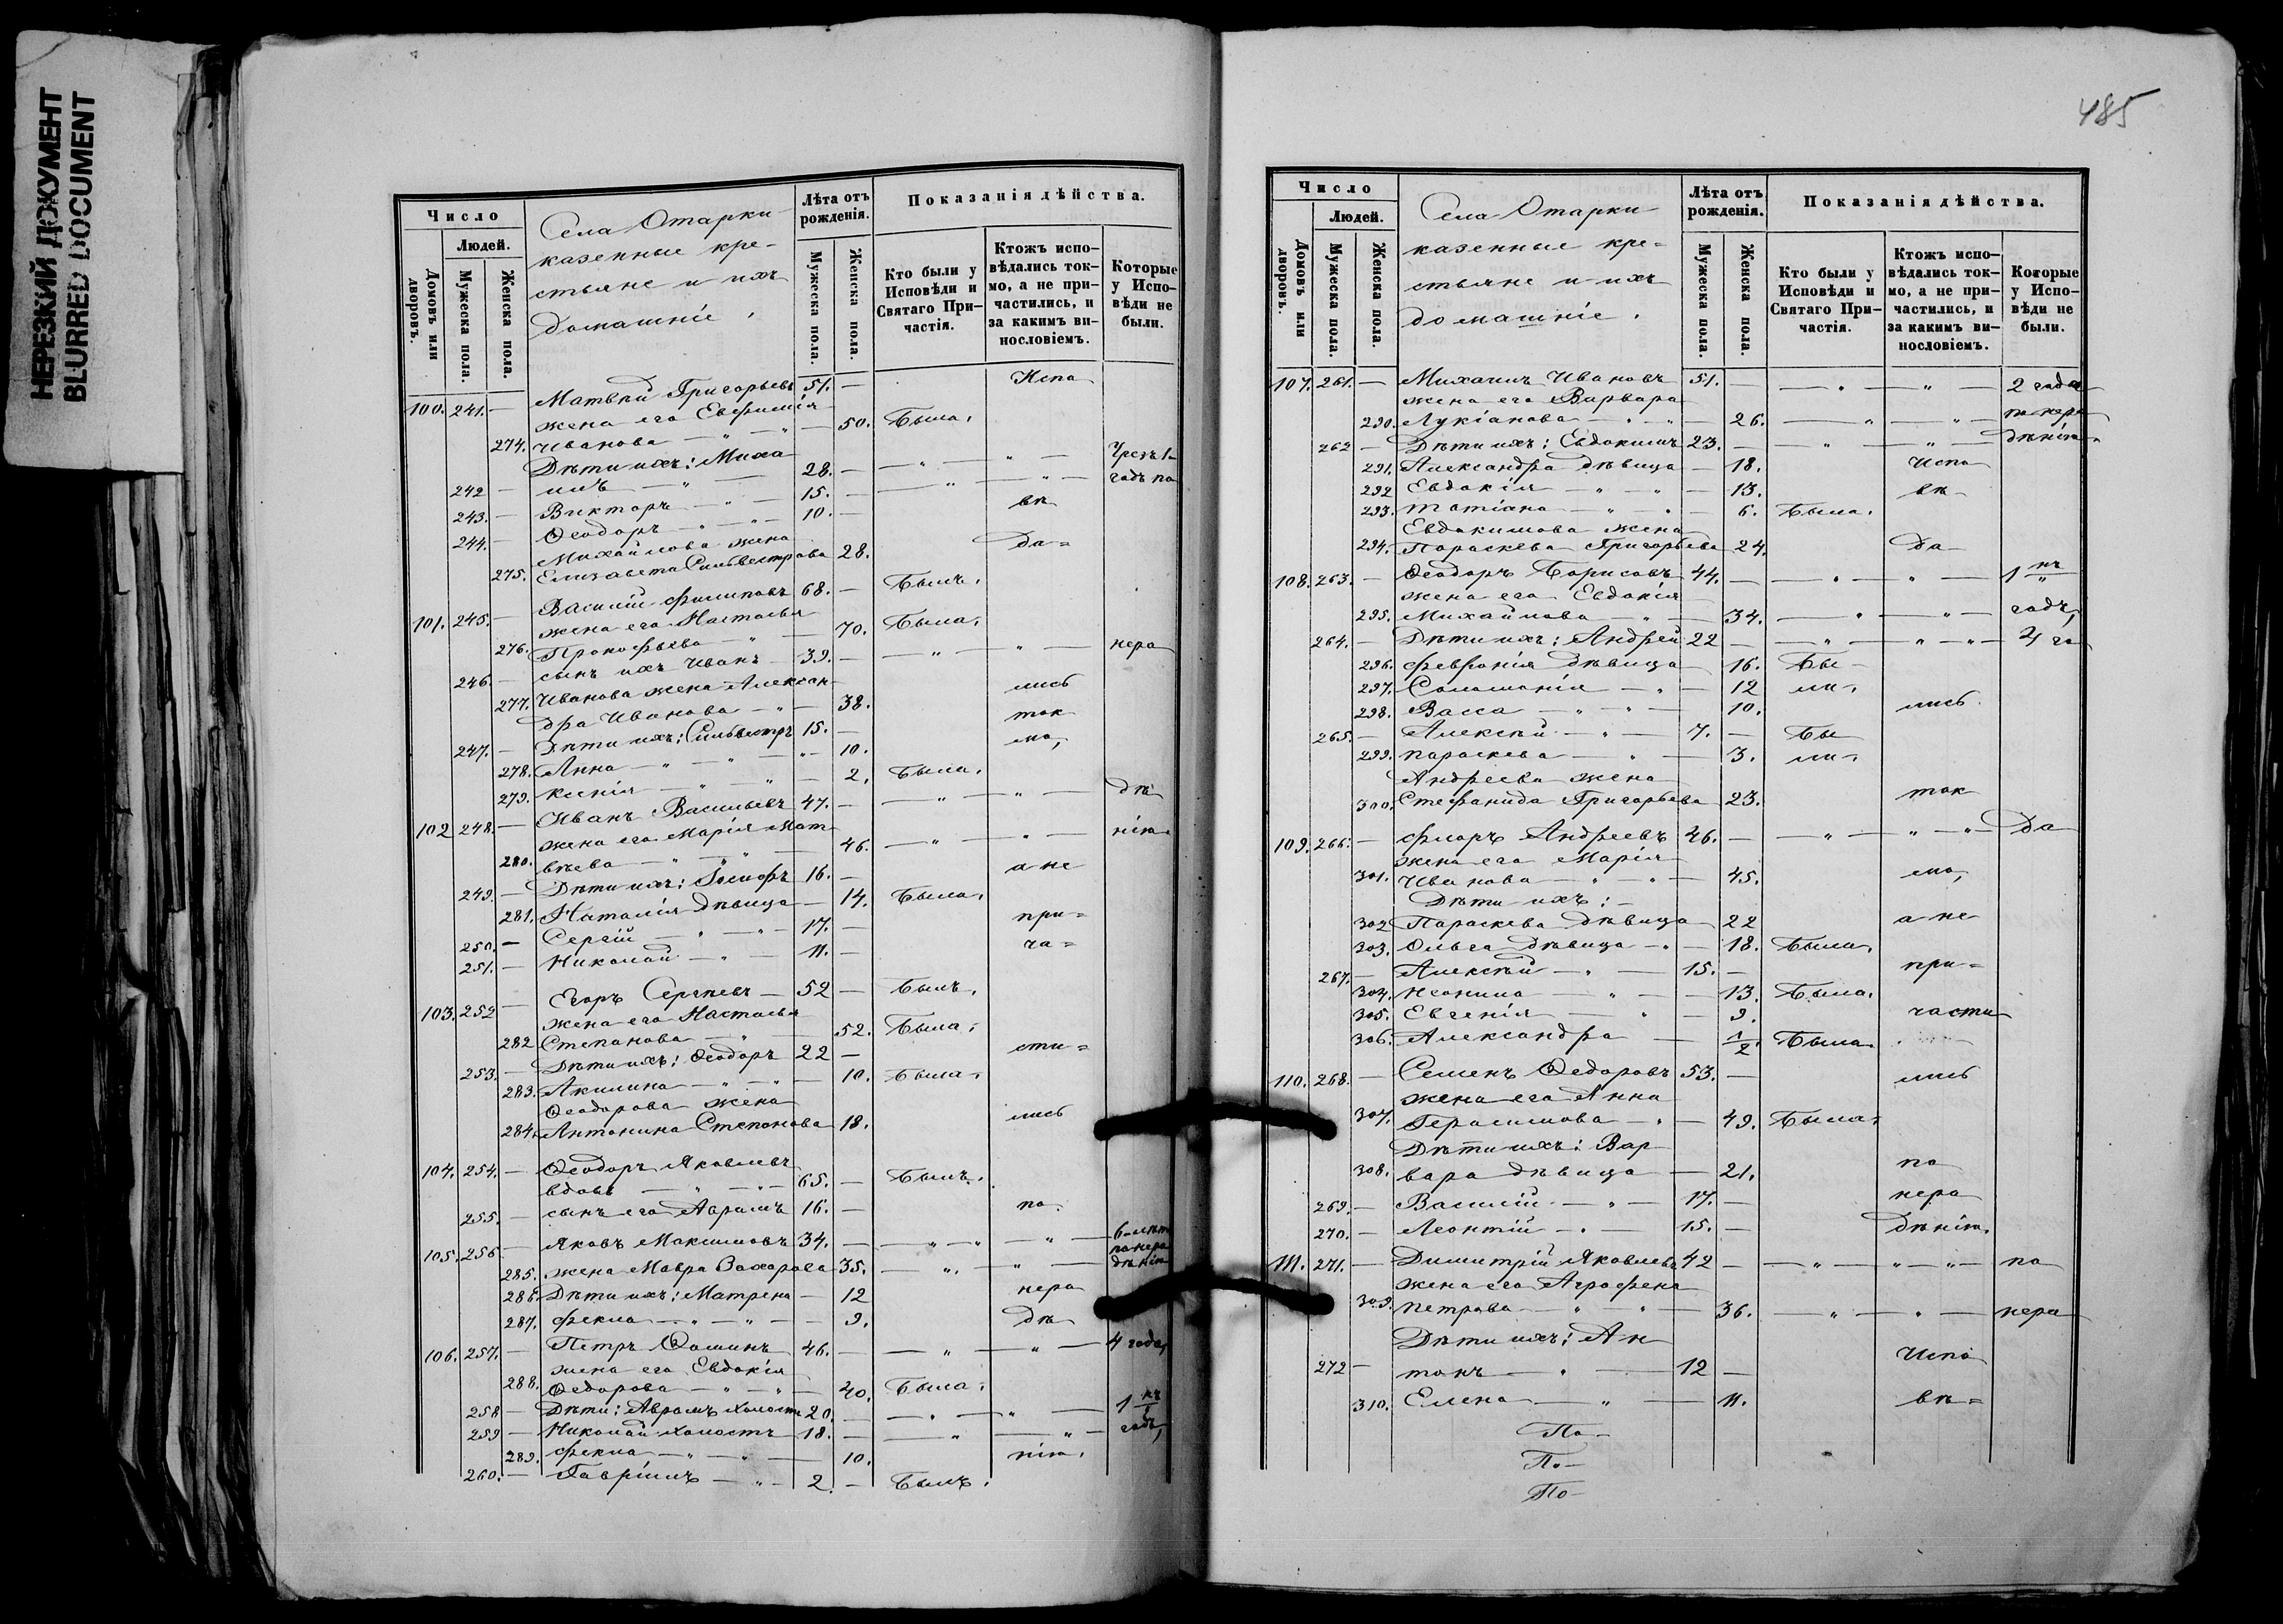 НЕРЕЗКИЙ ДОКУМЕНТ
BLURRED DOCUMENT
Число
Людей.
Домовъ или дворовъ.
Мужеска пола.
Женска пола.
Села Отарки
казенные кре-
стьяне и ихъ
домашніе.
Лѣта отъ рожденія.
Мужеска пола.
Женска пола.
Показанія дѣйства.
Кто были у Исповѣди и Святаго При-частія.
Ктожъ испо-вѣдались ток-мо, а не при-частились, и за какимъ ви-нословіемъ.
Которые у Испо-вѣди не были.
100. 241. — Матвѣй Григорьевъ 51. — Испо
жена его Евфимія
274. Иванова — „ — „ — 50. Была.
Дѣти ихъ: Миха
242 — илъ — „ — 28. — — „ — „ — Чрезъ 1
243. — Викторъ — „ — 15. — — „ — „ — годъ по
244. — Ѳеодоръ — „ — 10. — вѣ
Михайлова жена
275. Елизавета Сильвестрова 28. да=
101. 245. — Василій Филиповъ 68. — Былъ.
жена его Настасья
276. Прокофьева — „ — 70. Была.
246. — сынъ ихъ Иванъ — 39. — — „ — „ — нера
277. Иванова жена Алексан-
дра Иванова — „ — 38. лись
247. — Дѣти ихъ: Сильвестръ 15. — ток
278. Анна — „ — „ — „ — 10. мо,
279. Ксенія — „ — „ — 2. Была.
102 248. — Иванъ Васильевъ 47. — — „ — „ — дѣ
жена его Марія Мат-
280. вѣева — „ — „ — 46. — „ — „ — нію.
249. — Дѣти ихъ: Іосифъ 16. — а не
281. Наталія дѣвица — 14. Была.
250. — Сергій — „ — „ — 17. — при=
251. — Николай — „ — 11. — ча=
103. 252 — Егоръ Сергѣевъ — 52 — Былъ.
жена его Настасья
282 Степанова — „ — 52. Была.
253. — Дѣти ихъ: Ѳеодоръ 22 — сти=
283. Акилина — „ — „ — 10. Была.
Ѳеодорова жена
284. Антонина Степанова 18. лись
104. 254. — Ѳеодоръ Яковлевъ
вдовъ — „ — „ — 65. — Былъ.
255. — сынъ его Авраамъ 16. — по
105. 256 — Яковъ Максимовъ 34. — — „ — „ — „ — 6 лѣтъ
285. жена Мавра Захарова 35. — „ — „ — по нера дѣнію
286. Дѣти ихъ: Матрена — 12 нера
287. Фекла — „ — „ — 9. дѣ
106. 257. — Петръ Ѳоминъ 46. — — „ — „ — 4 года,
жена его Евдокія
288. Ѳедорова — „ — „ — 40. Была.
258 — Дѣти: Авраамъ холостъ 20. — — „ — „ — 1
259 — Николай холостъ 18. — — „ — „ — годъ,
289. Фекла — „ — „ — 10. нію.
260. — Гавріилъ — „ — 2. — Былъ.
485
Число
Людей.
Домовъ или дворовъ.
Мужеска пола.
Женска пола.
Села Отарки
казенные кре=
стьяне и ихъ
домашніе.
Лѣта отъ рожденія.
Мужеска пола.
Женска пола.
Показанія дѣйства.
Кто были у Исповѣди и Святаго При-частія.
Ктожъ испо-вѣдались ток-мо, а не при-частились, и за какимъ ви-нословіемъ.
Которые у Испо-вѣди не были.
107. 261. — Михаилъ Ивановъ 51. — — „ — „ — 2 года
жена его Варвара
290. Лукіанова — „ — „ — 26. — „ — „ — по нера
262 — Дѣти ихъ: Евдокимъ 23. — — „ — „ — дѣнію
291. Александра дѣвица — 18. Испо
292 Евдокія — „ — „ — 13. вѣ
293. Татіана — „ — „ — 6. Была.
Евдокимова жена
294. Параскева Григорьева 24. да
108. 263. — Ѳеодоръ Борисовъ 44. — — „ — „ — 1
жена его Евдокія
295. Михайлова — „ — 34. — „ — „ — годъ,
264. — Дѣти ихъ: Андрей 22 — — „ — „ — „ — 4 го
296. Февронія дѣвица — 16. Бы-
297. Соломонія — „ — 12 ли.
298. Васса — „ — „ — 10. лись.
265. — Алексѣй — „ — 7. — Бы
299. Параскева — „ — 3. ли.
Андреева жена
300. Стефанида Григорьева 23. ток
109. 266. — Флоръ Андреевъ 46. — — „ — „ — „ — да
жена его Марія
301. Иванова — „ — „ — 45. мо,
Дѣти ихъ: —
302 Параскева дѣвица 22 а не
303. Ольга дѣвица — „ — 18. Была.
267. — Алексѣй — „ — 15. — при=
304. Неонила — „ — 13. Была.
305. Евгенія — „ — 9. части
306. Александра — 1/2. Была.
110. 268. — Семенъ Ѳедоровъ 53. — лись
жена его Анна
307. Герасимова — „ — 49. Была.
Дѣти ихъ: Вар
308. вара дѣвица — 21. по
269. — Василій — „ — 17. — нера
270. — Леонтій — „ — 15. — дѣнію.
111. 271. — Димитрій Яковлевъ 42 — — „ — „ — „ — по
жена его Агрофена
309. Петрова — „ — „ — 36. — „ — „ — нера
Дѣти ихъ: Ан
272 — тонъ — „ — 12 — Испо
310. Елена — „ — 11. вѣ=
По-
По-
По-